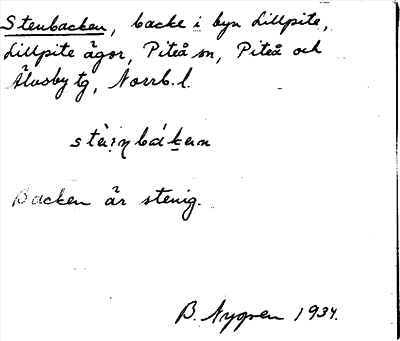 Stenbacken, backe i byn Lillpite,
Lillpite ägor, Piteå sn, Piteå och
Älvsby tg, Norrb. l.
stèi̯ṇbák̲an
Backen är stenig.
B. Nygren 1934.